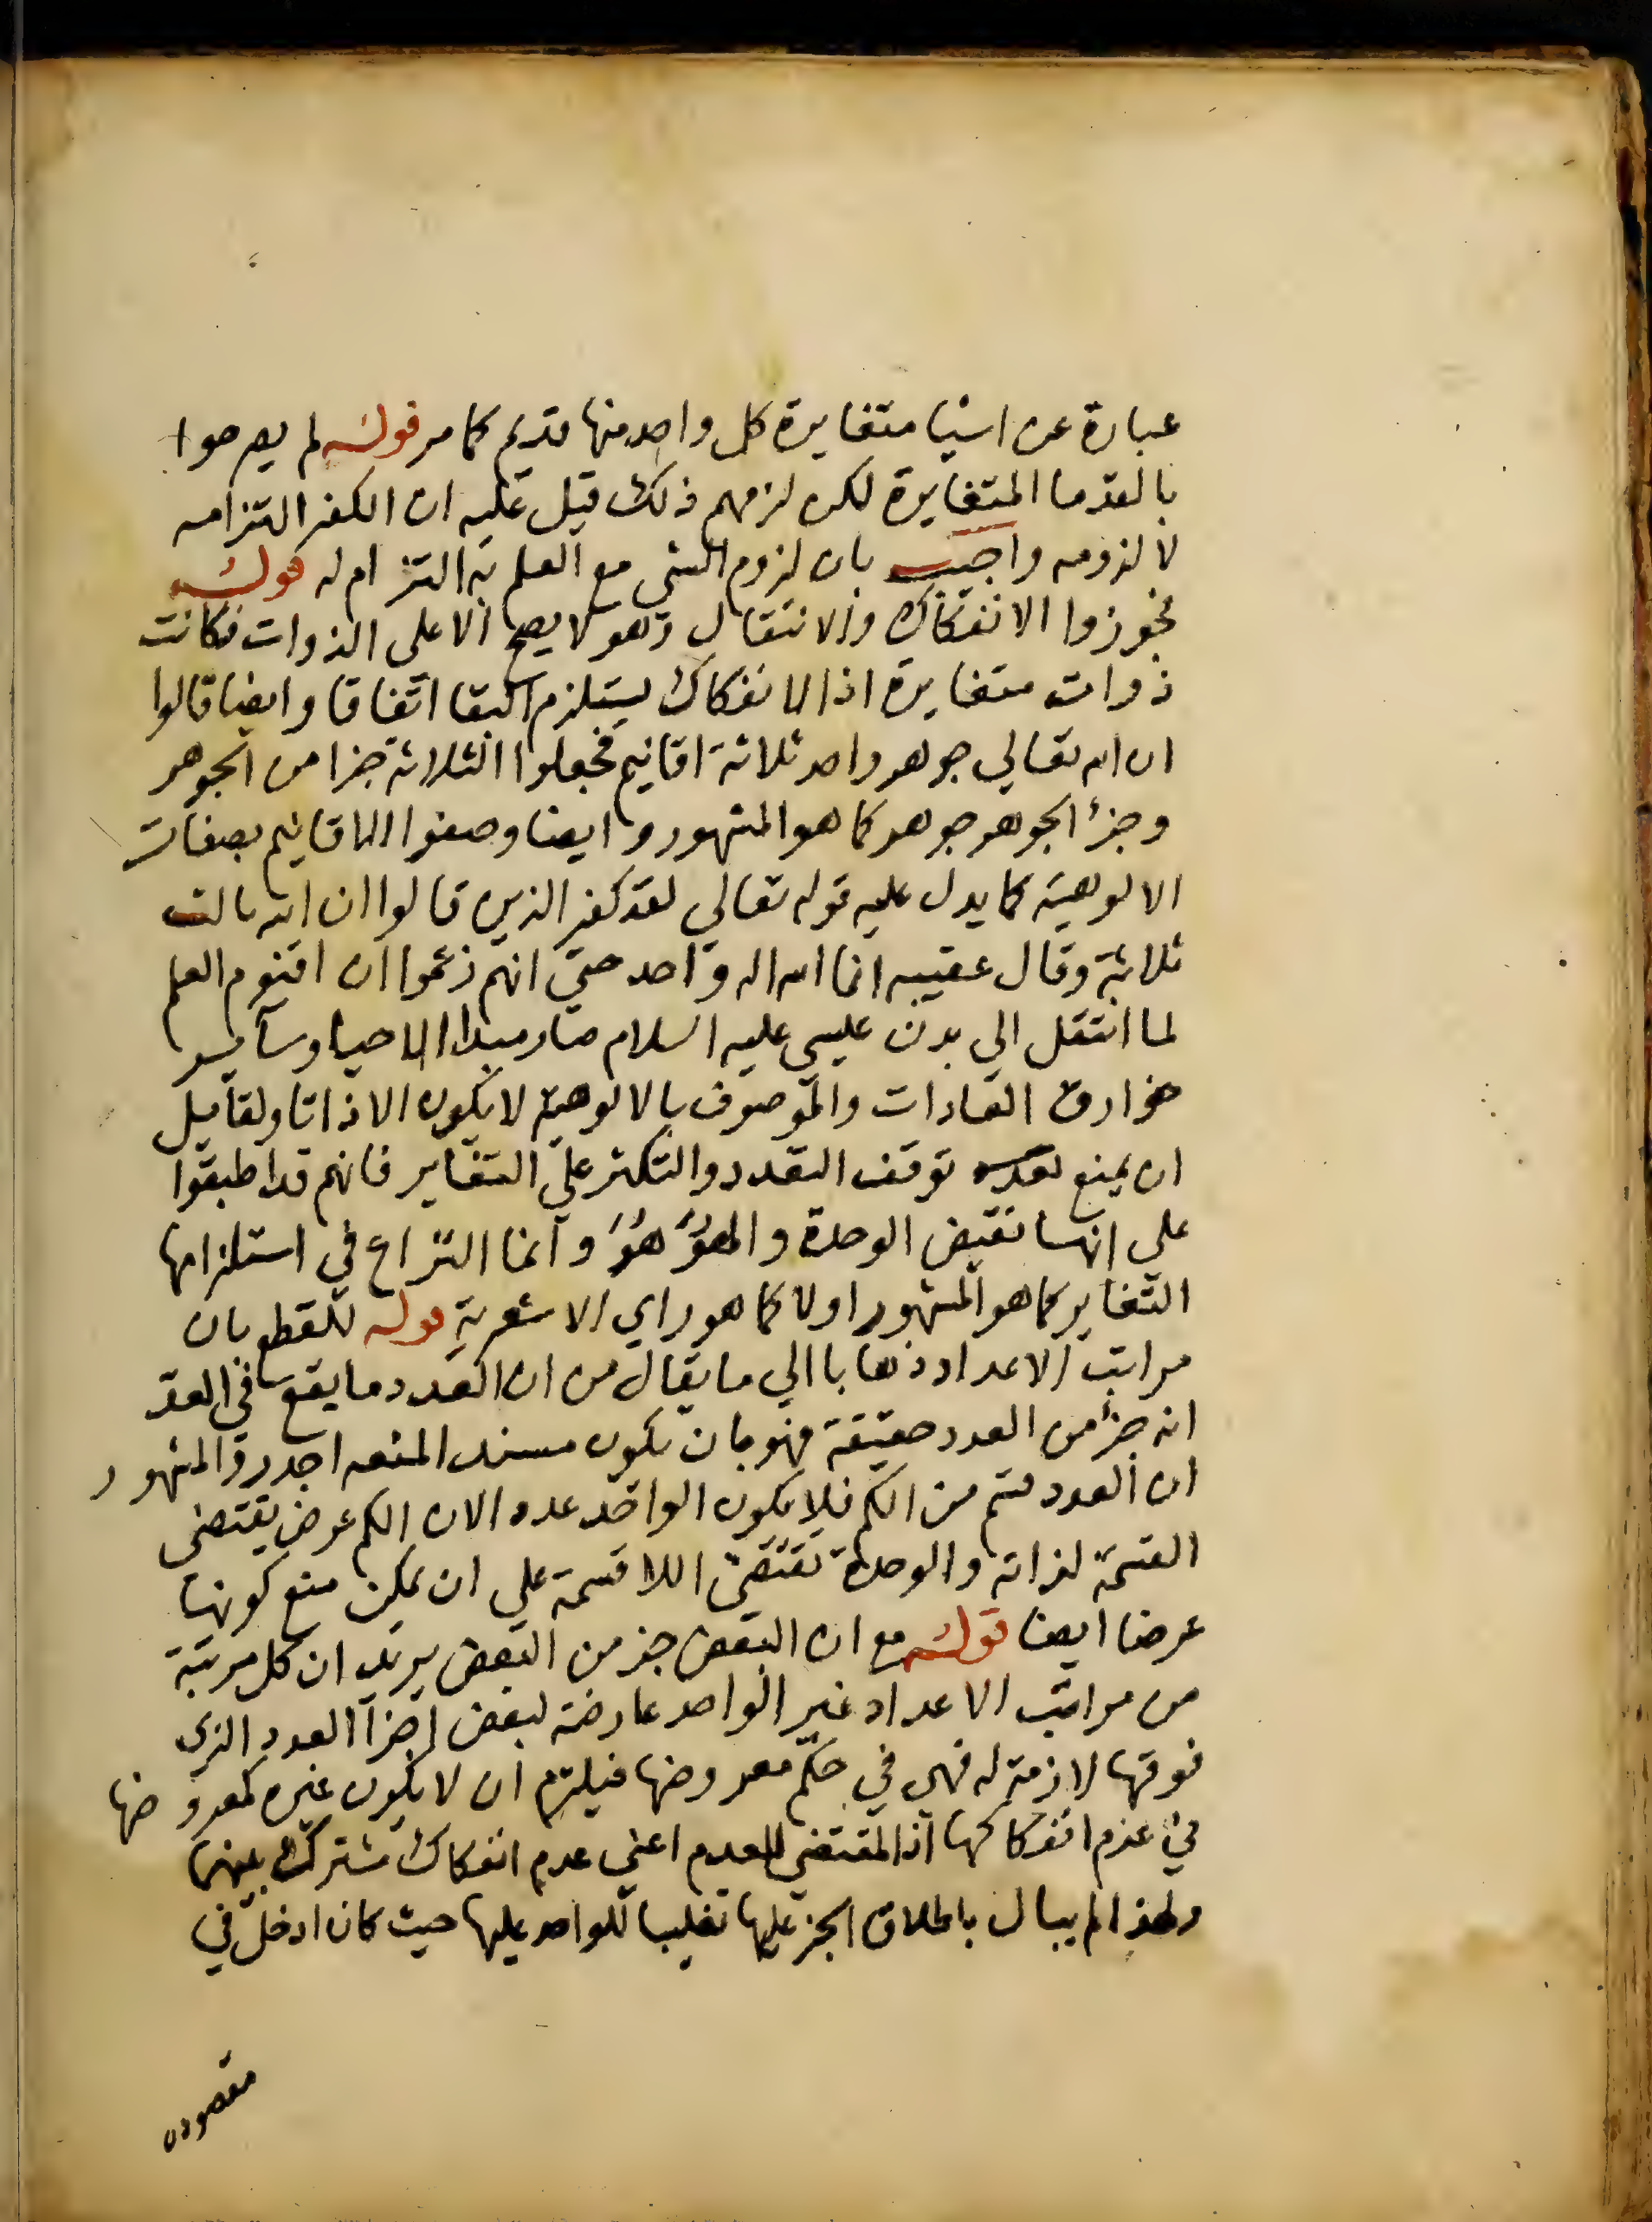 عبارة عن اشيا متغايرة كل واحد منها قديم كما مر قوله لم يصرحوا
بالقدما المتغايرة لكن لزمهم ذلك قيل عليه ان الكفر التزامه
لا لزومه واجيب بان لزوم الشي مع العلم به التزام له قوله
فجوزوا الانفكاك والانتقال وهو لا يصح الا على الذوات فكانت
ذوات متغايرة اذ الانفكاك يستلزم البقا اتفاقا وايضا قالوا
ان الله تعالي جوهر واحد ثلاثة اقانيم فجعلوا الثلاثة جزا من الجوهر
وجزأ الجوهر جوهر كما هو المشهور وايضا وصفوا الاقانيم بصفات
الالوهية كما يدل عليه قوله تعالي لقد كفر الذين قالوا ان الله ثالث
ثلاثة وقال عقيبه انما الله اله واحد حتي انهم زعموا ان اقنوم العلم
لما انتقل الي بدن عيسي عليه السلام صار مبدا الاحيا وساير
خوارق العادات والموصوف بالالوهية لا يكون الا ذاتا ولقايل
ان يمنع توقف التعدد والتكثر علي التغاير فانهم قد اطبقوا
علي انهما نقيض الوحدة والهو هو وانما النزاع في استلزامها
التغاير كما هو المشهور اولا كما هو راي الاشعرية قوله للقطع بان
مراتب الاعداد ذهابا الي ما يقال من ان العدد ما يقع في العد
انه جزأ من العدد حقيقة فهو بان يكون مسند المنع اجدر والمشهور
ان العدد قسم من الكم فلا يكون الواحد عددا لان الكم عرض يقتضي
القسمة لذاته والوحدة تقتضي اللا قسمة علي ان يمكن منع كونها
عرضا ايضا قوله مع ان البعض جز من البعض يريد ان كل مرتبة
من مراتب الاعداد غير الواحد عارضة لبعض اجزا العدد الذي
فوقها لازمة له فهي في حكم معروضها فيلتزم ان لا يكون غيره كمعروضها
في عدم انفكاكها اذ المقتضي للعدم اعني عدم انفكاك مشترك بينهما
ولهذا لم يبال باطلاق الجز عليها تغليبا للواحد عليها حيث كان ادخل في
مقصوده